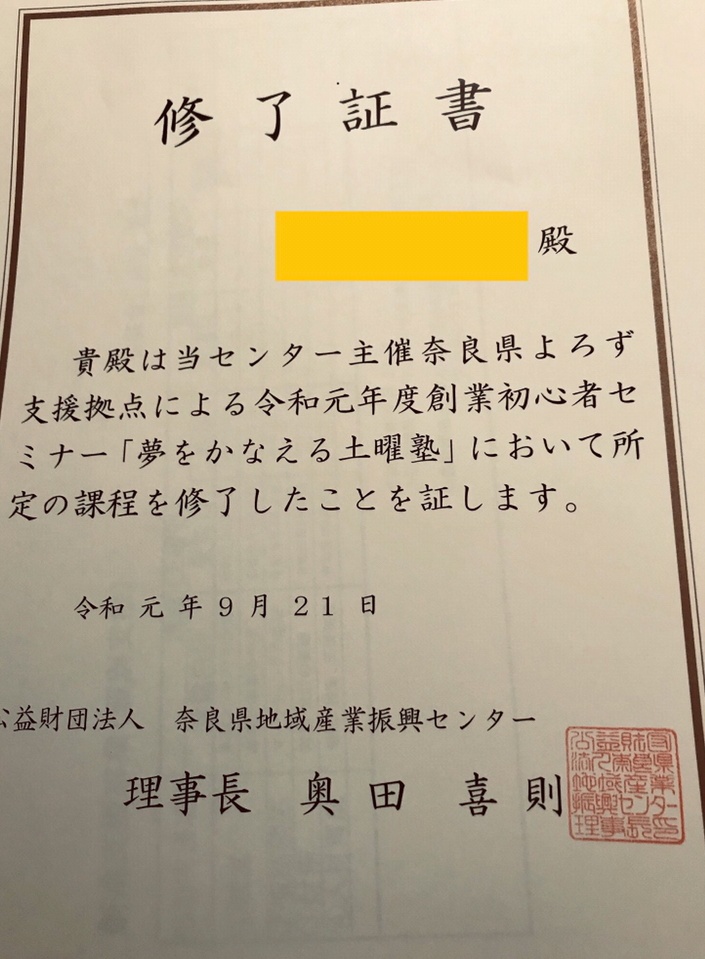 修了証書
殿
貴殿は当センター主催奈良県よろず
支援拠点による令和元年度創業初心者セ
ミナー「夢をかなえる土曜塾」において所
定の課程を修了したことを証します。
令和 元 年 9 月 21 日
公益財団法人 奈良県地域産業振興センター
理事長 奥田 喜則